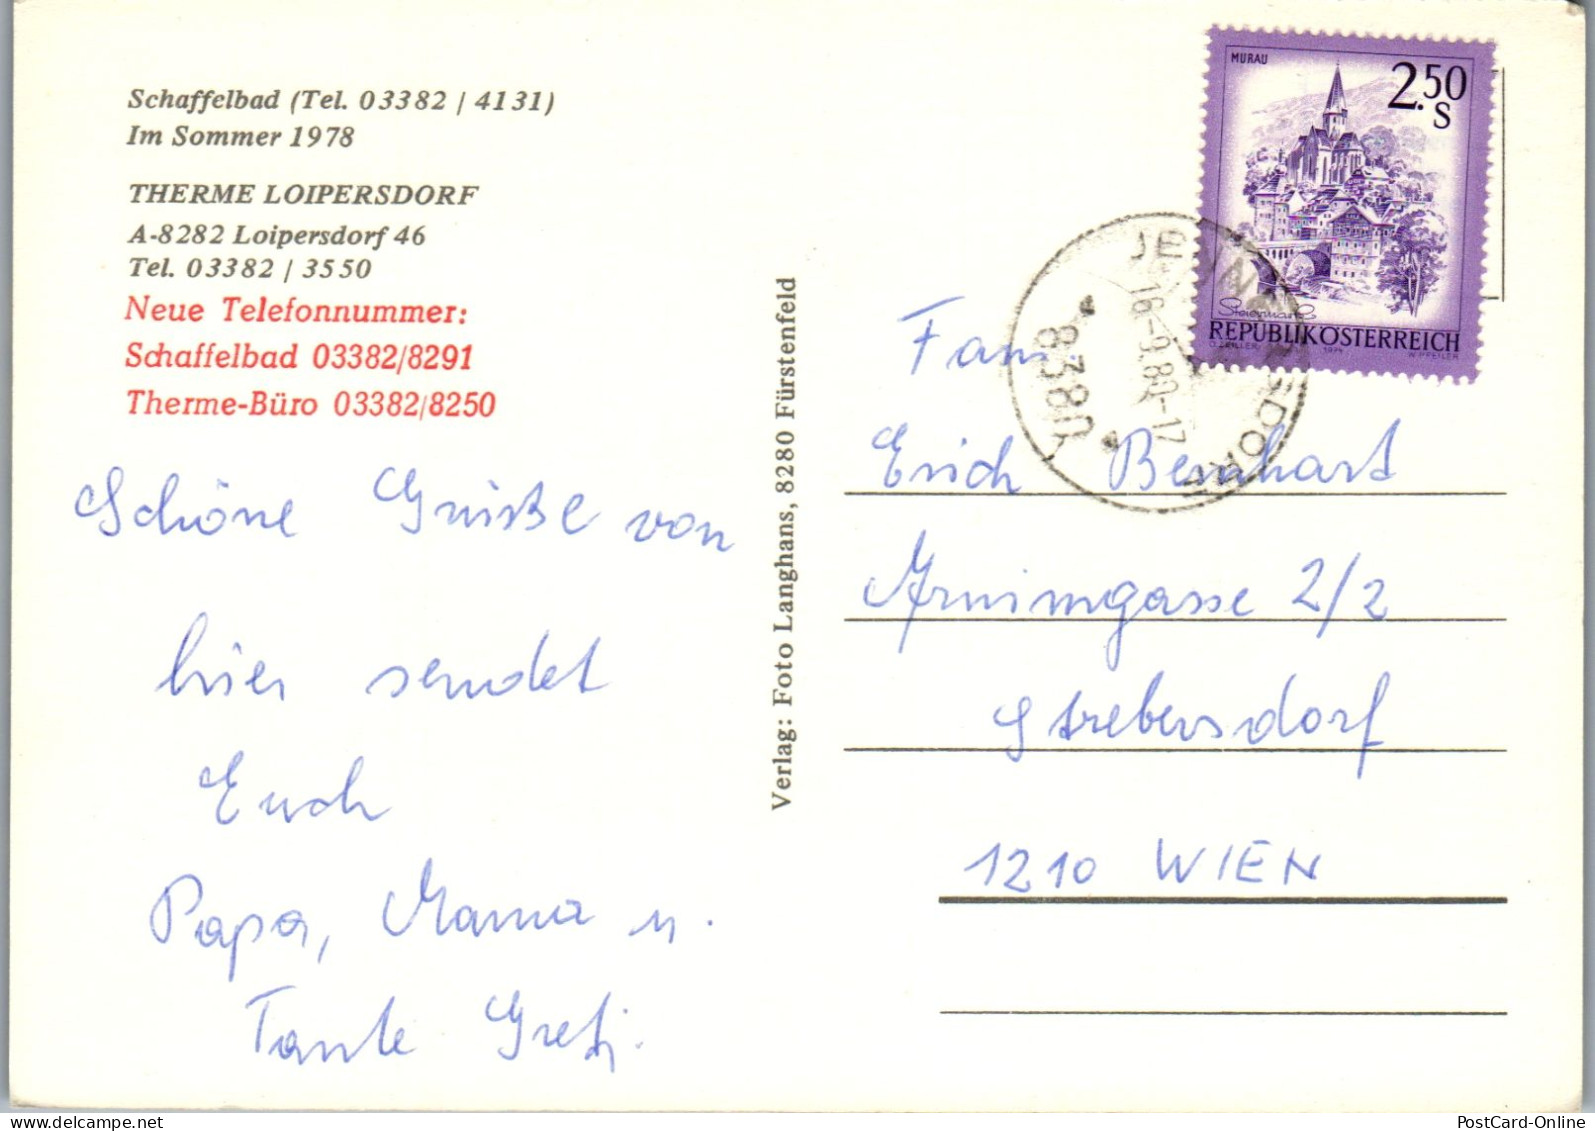 Schaffelbad (Tel. 03382 / 4131)
Im Sommer 1978
THERME LOIPERSDORF
A-8282 Loipersdorf 46
Tel. 03382 / 3550
Neue Telefonnummer:
Schaffelbad 03382/8291
Therme-Büro 03382/8250
Schöne Grüße von
hier sendet
Euch
Papa, Mama u.
Tante Greti.
Verlag: Foto Langhans, 8280 Fürstenfeld
MURAU
2.50
S
Steiermark
REPUBLIK ÖSTERREICH
O. ZEILLER 1974 W. PFEILER
JENNERSDORF
16.-9.80-17
8380
Fam.
Erich Bernhart
Arnimgasse 2/2
Strebersdorf
1210 WIEN
PostCard-Online